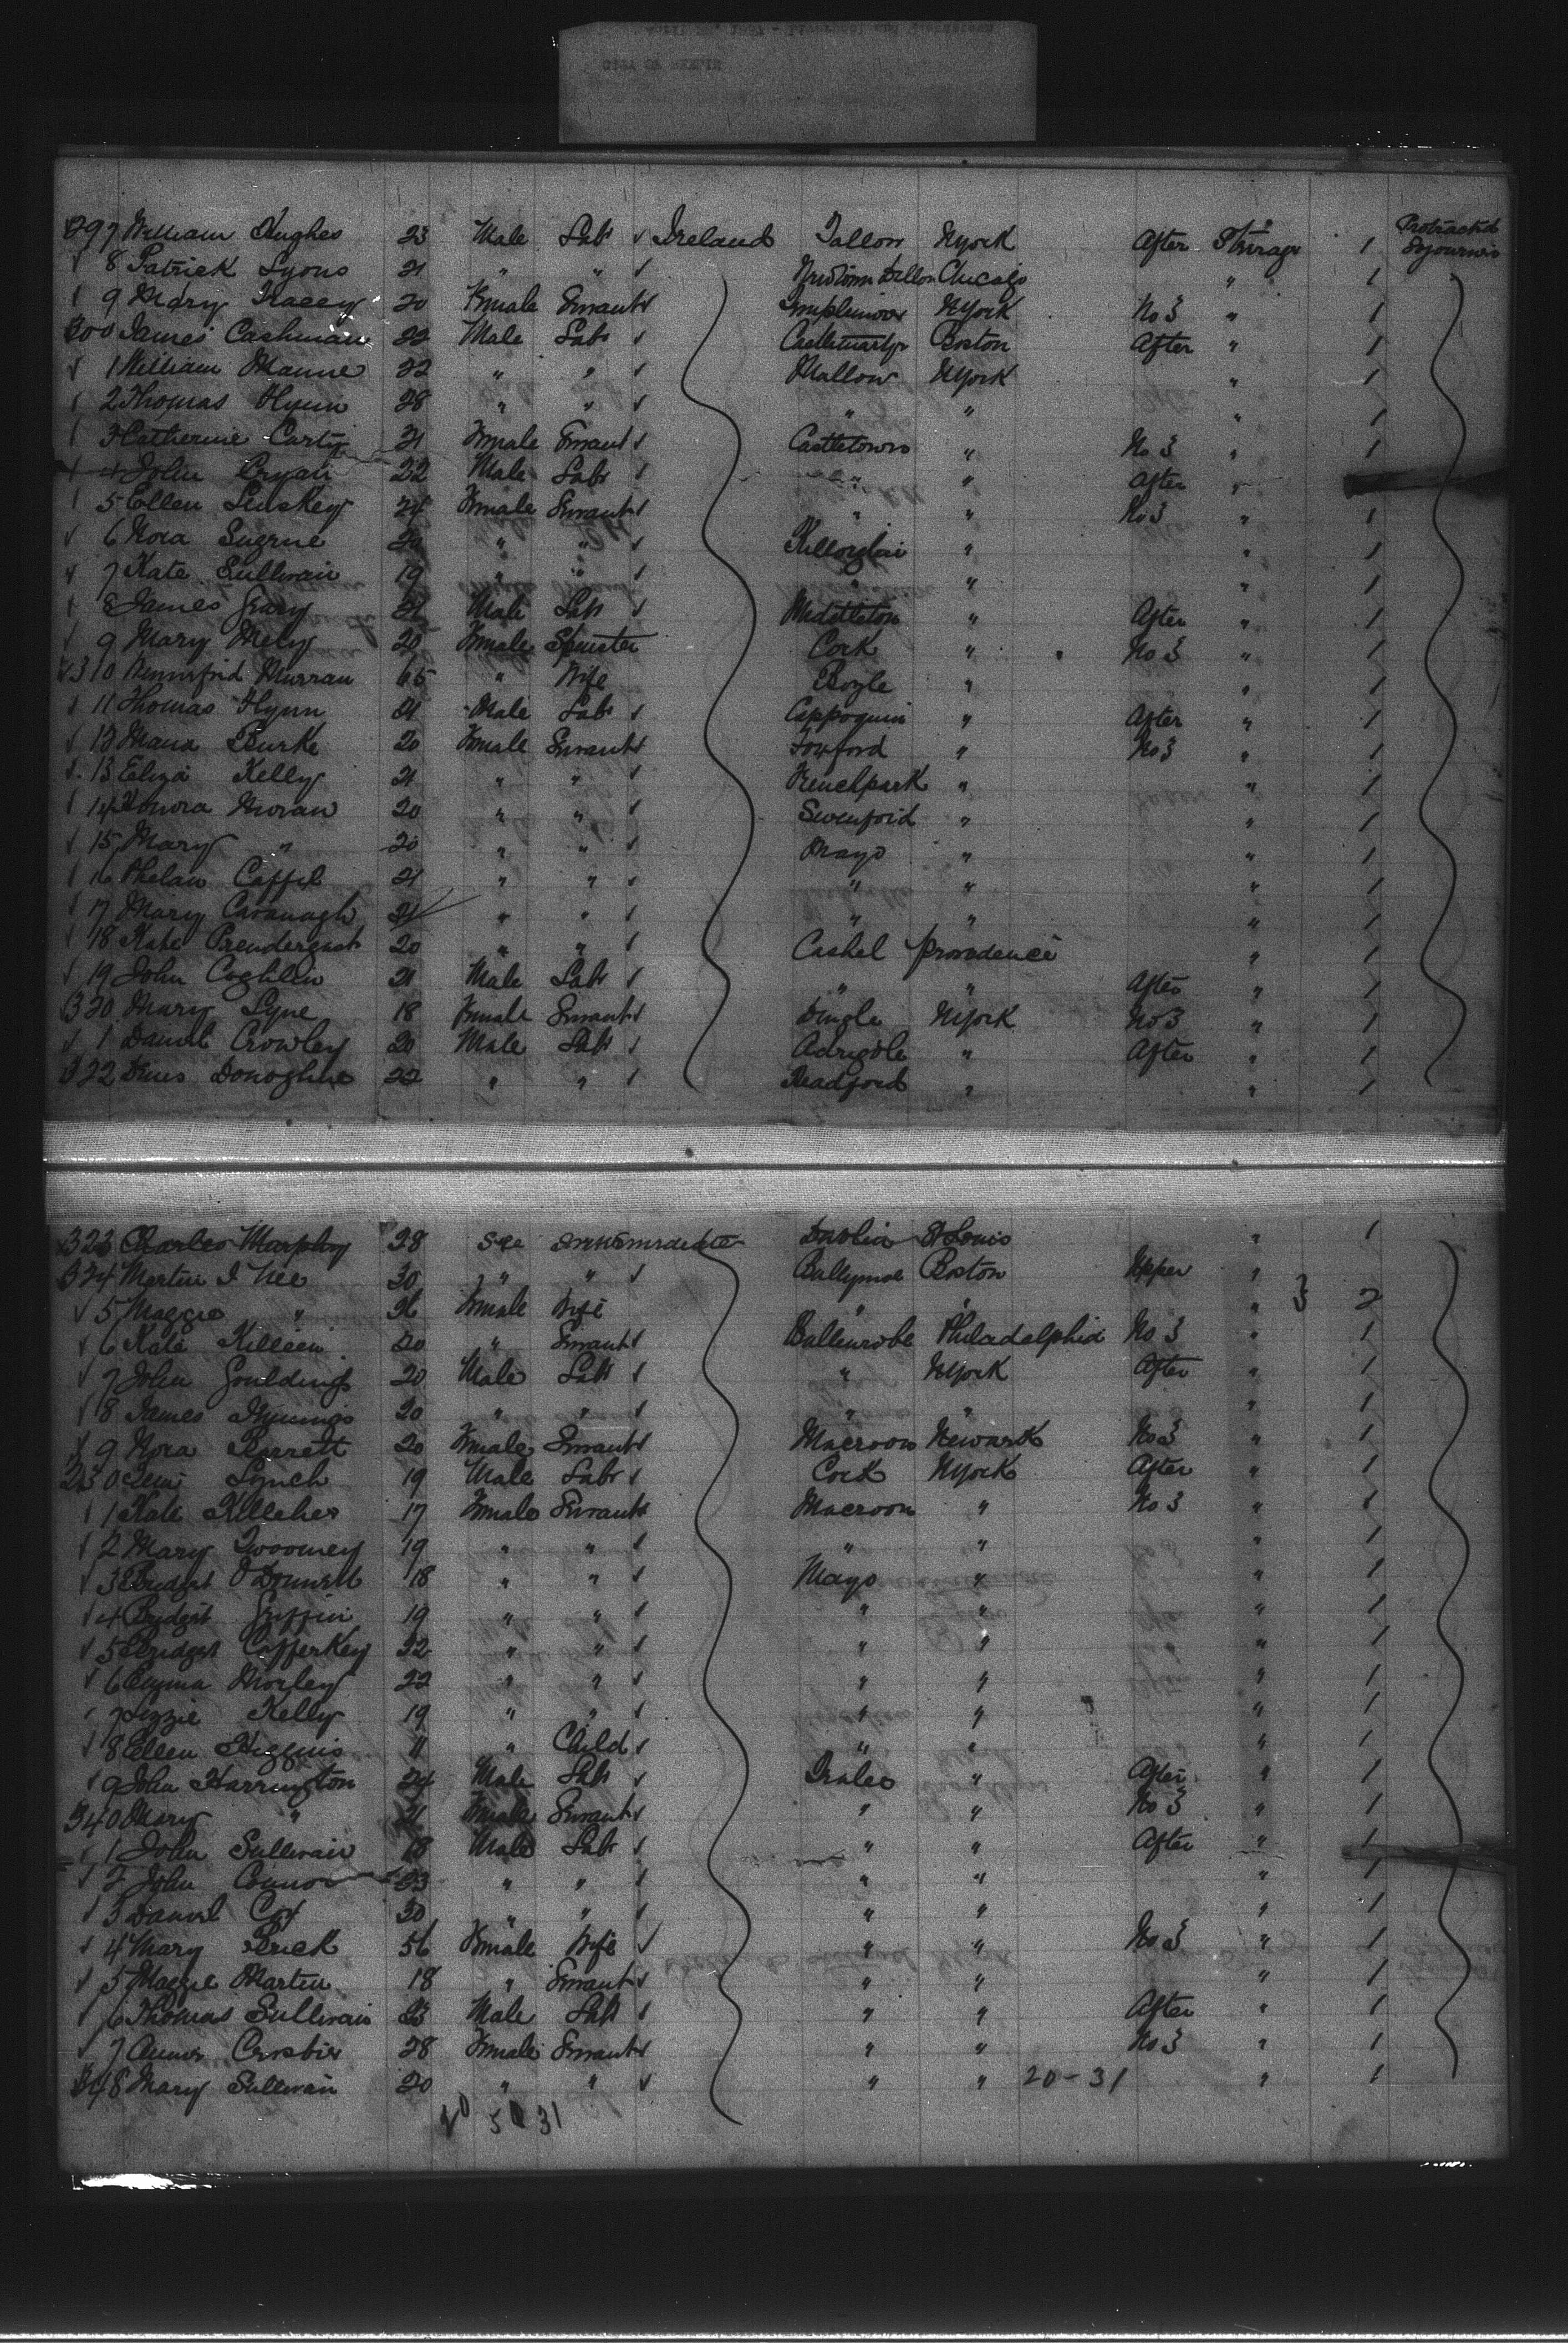 297 William Hughes 23 Male Labr Ireland Tallow NYork After Steerage 1 Protracted Sojourn
8 Patrick Lyons 21 " " Chicago " 1
9 Mary Tracey 20 Female Servant NYork No 3 " 1
300 James Cashman 22 Male Labr Castlemartyr Boston After " 1
1 William Manne 22 " " Mallow NYork " 1
2 Thomas Flynn 28 " " " " " 1
3 Catherine Carty 21 Female Servant Castletown " No 3 " 1
4 John Cryan 22 Male Labr " " After "
5 Ellen Luskey 24 Female Servant " " No 3 " 1
6 Nora Sugrue 20 " " Killorglin " " 1
7 Kate Sullivan 19 " " " " " 1
8 James Geary 21 Male Labr Middleton " After " 1
9 Mary Mely 20 Female Spinster Cork " No 3 " 1
310 Winnifrid Murran 65 " Wife Boyle " " 1
11 Thomas Flynn 21 Male Labr Cappoquin " After " 1
12 Maria Burke 20 Female Servant Foxford " No 3 " 1
13 Eliza Kelly 21 " " Frenchpark " " 1
14 Honora Moran 20 " " Swenford " " 1
15 Mary " 20 " " Mayo " " 1
16 Phelan Caffel 21 " " " " " 1
17 Mary Cavanagh 21 " " " " " 1
18 Kate Prendergast 20 " " Cashel Providence " 1
19 John Coghlin 21 Male Labr " " After " 1
320 Mary Lyne 18 Female Servant Dingle NYork No 3 " 1
1 Daniel Crowley 20 Male Labr Adrigole " After " 1
322 Denis Donoghue 22 " " Headford " " 1
323 Charles Murphy 28 See Intermediate Dublin St Louis " 1
324 Martin J Nee 30 " " Ballymoe Boston Upper "
5 Maggie " 26 Female Wife " " " 2
6 Kate Killeen 20 " Servant Ballinrobe Philadelphia No 3 " 1
7 John Gouldings 20 Male Labr " NYork After " 1
8 James 20 " " " " " 1
9 Nora Barrett 20 Female Servant Macroom Newark No 3 " 1
330 Lynch 19 Male Labr Cork NYork After " 1
1 Kate Kelleher 17 Female Servant Macroom " No 3 " 1
2 Mary Twoomey 19 " " " " " 1
3 Bridget O'Donnell 18 " " Mayo " " 1
4 Bridget Griffin 19 " " " " " 1
5 Bridget Cafferkey 22 " " " " " 1
6 Emma Morley 22 " " " " " 1
7 Lizzie Kelly 19 " " " " " 1
8 Ellen Higgins 11 " Child " " " 1
9 John Harrington 24 Male Labr Tralee " After " 1
340 Mary " 21 Female Servant " " No 3 " 1
1 John Sullivan 18 Male Labr " " After " 1
2 John Connor 23 " " " " " 1
3 Daniel Cox 30 " " " " " 1
4 Mary Brick 56 Female Wife " " No 3 " 1
5 Maggie Martin 18 " Servant " " " 1
6 Thomas Sullivan 23 Male Labr " " After " 1
7 Crosbie 28 Female Servant " " No 3 " 1
348 Mary Sullivan 20 " " " " 20-31 " 1
20 51 31